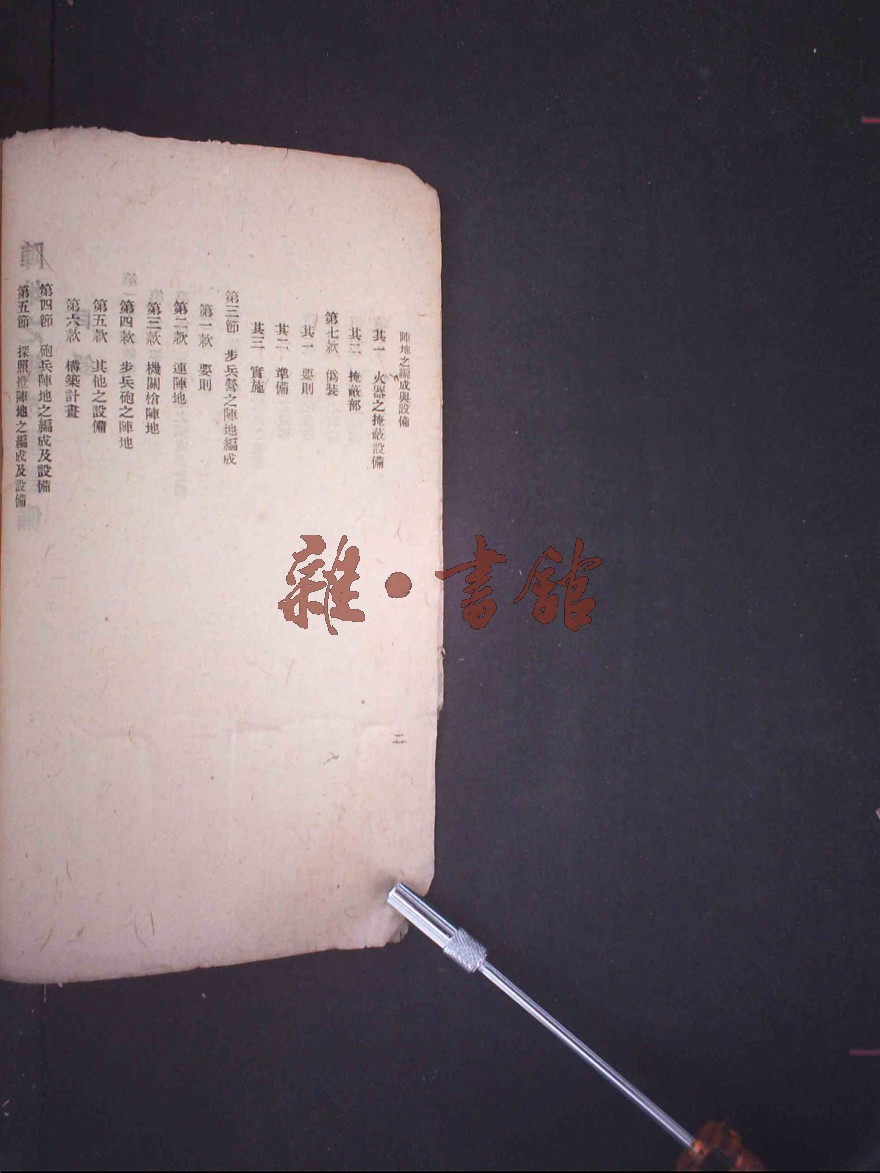 陣地之編成與設備
其一　火器之掩蔽設備
其二　掩蔽部
第七款　偽裝
其一　要則
其二　準備
其三　實施
第三節　步兵營之陣地編成
第一款　要則
第二款　連陣地
第三款　機關槍陣地
第四款　步兵砲之陣地
第五款　其他之設備
第六款　構築計畫
第四節　砲兵陣地之編成及設備
第五節　探照燈陣地之編成及設備
二
雜·書館